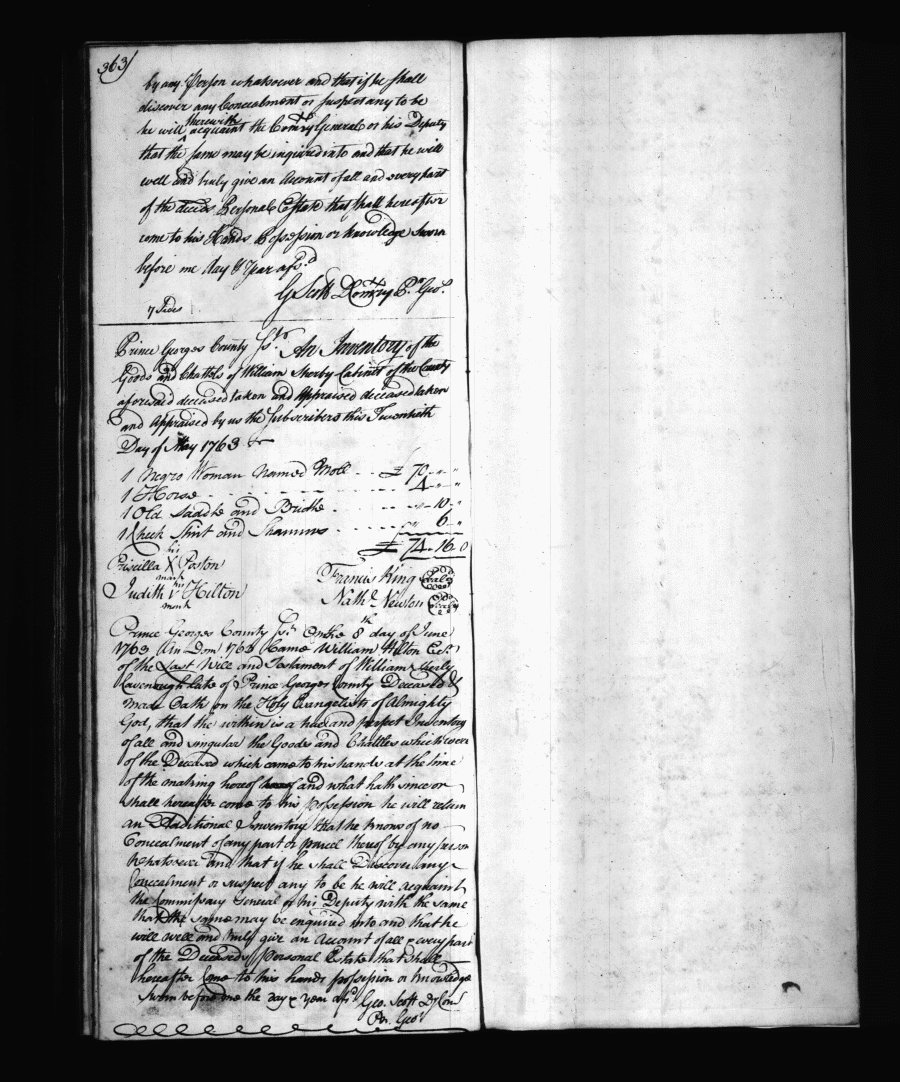 363
by any Person whatsoever and that if he shall
discover any Concealment or suspect any to be
he will therewith acquaint the Comry General or his Deputy
that the same may be inquired into and that he will
well and truly give an Account of all and every part
of the deceds Personal Estate that shall hereafter
come to his Hands Possession or knowledge Sworn
before me day & Year afsd
G Scott D Comry Pr. Geo.
7 Sides
Prince Georges County Sst An Inventory of the
Goods and Chattels of William of the County
aforesaid deceased taken and Appraised deceased taken
and Appraised by us the Subscribers this Twentieth
Day of May 1763
1 Negro Woman Named Moll - - - £ 70 " - "
1 Horse - - - - - - 4 " - "
1 Old Saddle and Bridle - - - - " - 10 - "
1 Check Shirt and - - - - " 6 - "
£ 74 - 16 - 0
Priscilla his X mark Poston
Judith his mark Hilton
Francis King
Nathl Newton
Prince Georges County Sst On the 8th day of June
1763 Ann Dom 1763 Came William Hilton Exr
of the Last Will and Testament of William
late of Prince Georges County Deceased &
made Oath on the Holy Evangelists of Almighty
God, that the within is a true and perfect Inventory
of all and singular the Goods and Chattles which were
of the Deceased which came to his hands at the time
of the making hereof and what hath since or
shall hereafter come to his possession he will return
an Additional Inventory that he knows of no
Concealment of any part or parcel thereof by any person
Whatsoever and that if he shall Discover any
Concealment or suspect any to be he will acquaint
the Commissary General or his Deputy with the same
that the same may be enquired into and that he
will well and truly give an Account of all & every part
of the Deceaseds personal Estate that shall
hereafter Come to his hands possession or knowledge
Sworn before me the day & year afsd Geo. Scott Dy Com
Pr. Geos